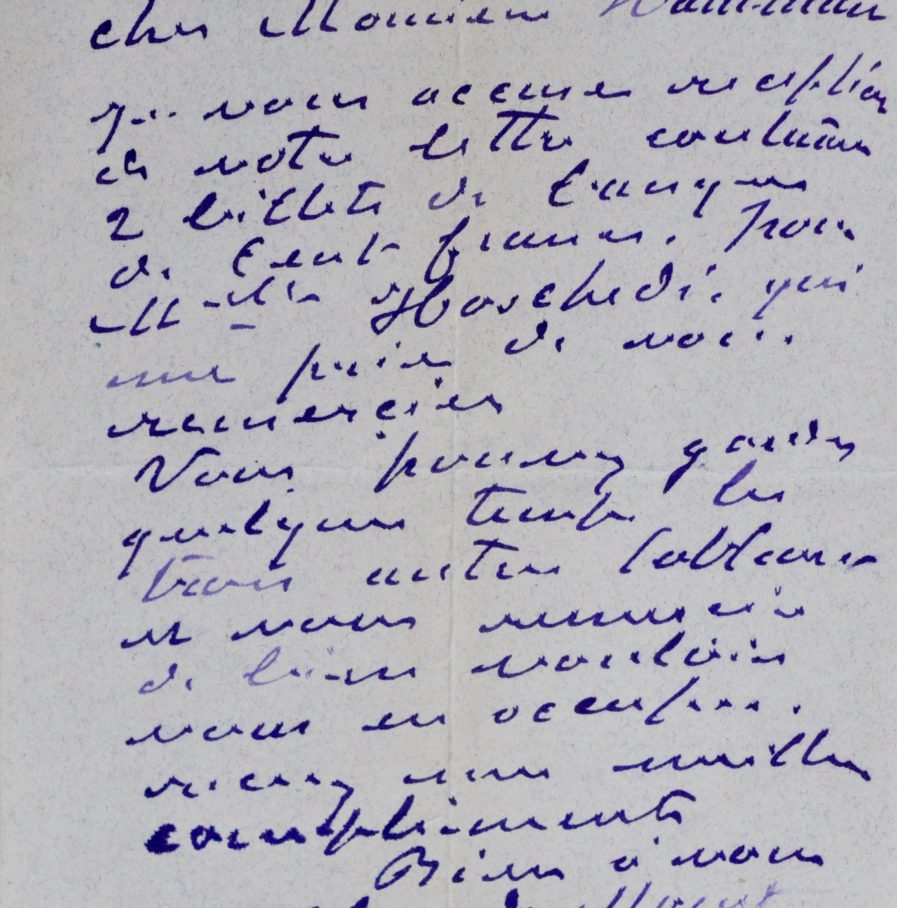 cher Monsieur
je vous accuse reception
de votre lettre contenant
2 billets de banque
de Cent francs. pour
Melle Hoschedé. qui
me prie de vous
remercier
Vous pouvez garder
quelques temps les
trois autres tableaux
et vous remercie
de bien vouloir
vous en occuper.
recevez mes meilleurs
compliments
Bien à vous
Monet